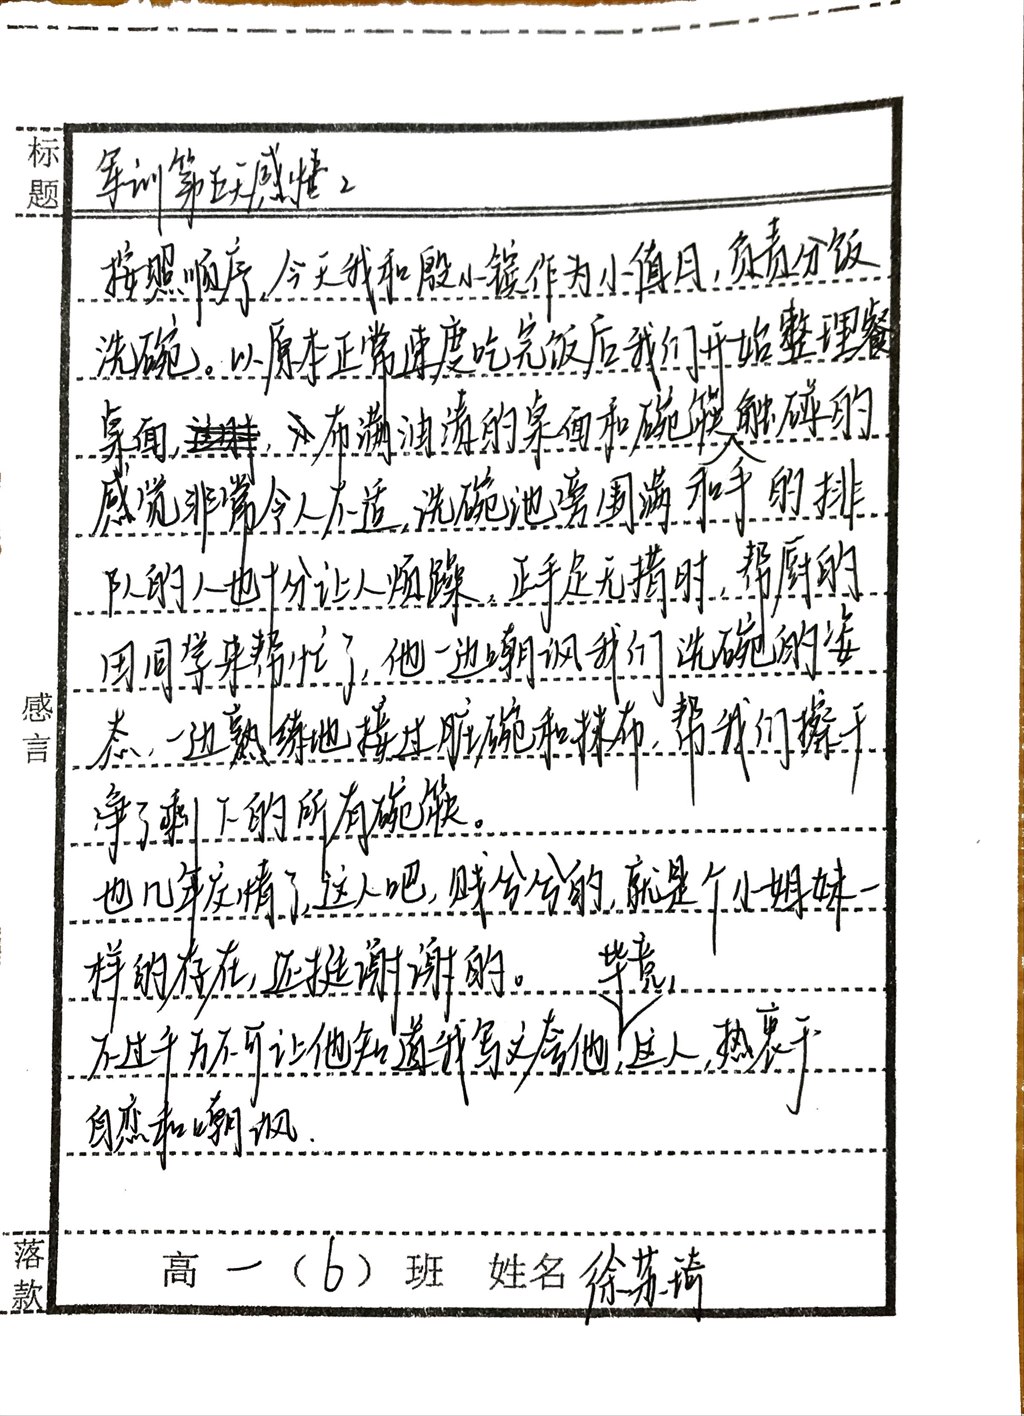 标题
军训第五天感悟2
按照顺序,今天我和殷小铵作为小值日,负责分饭
洗碗。以原本正常速度吃完饭后我们开始整理餐
桌面,布满油渍的桌面和碗筷触碰的
感觉非常令人不适,洗碗池旁围满和手的排
队的人也十分让人烦躁。正手足无措时,帮厨的
田同学来帮忙了,他一边嘲讽我们洗碗的姿
态,一边熟练地接过脏碗和抹布,帮我们擦干
净了剩下的所有碗筷。
也几年友情了,这人吧,贱兮兮的,就是个小姐妹一
样的存在,还挺谢谢的。
毕竟,
不过千万不可让他知道我写文夸他,这人,热衷于
自恋和嘲讽.
感言
落款
高一(6)班 姓名 徐苏琦